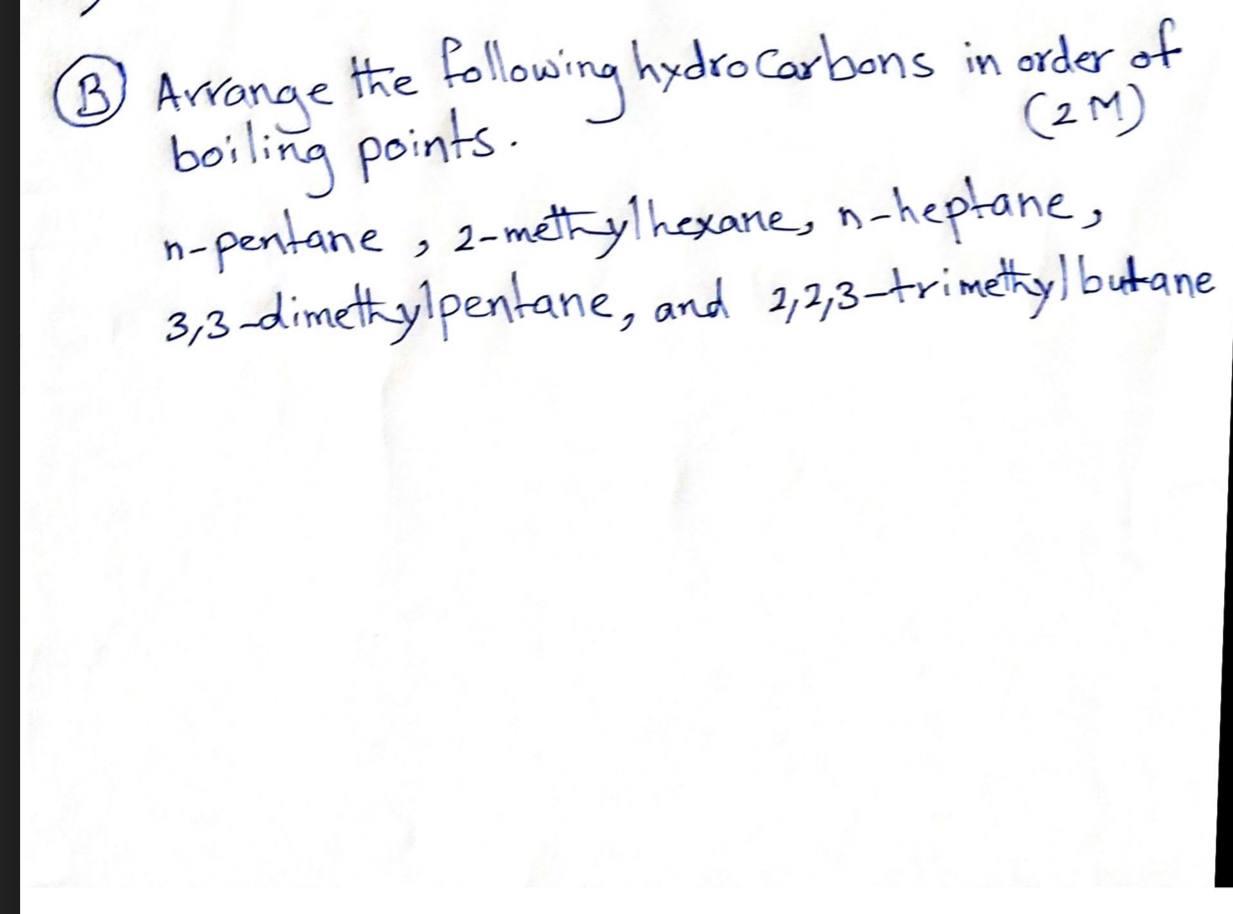 B Arrange the following hydrocarbons in order of
boiling points. (2M)
n-pentane, 2-methylhexane, n-heptane,
3,3-dimethylpentane, and 2,2,3-trimethylbutane